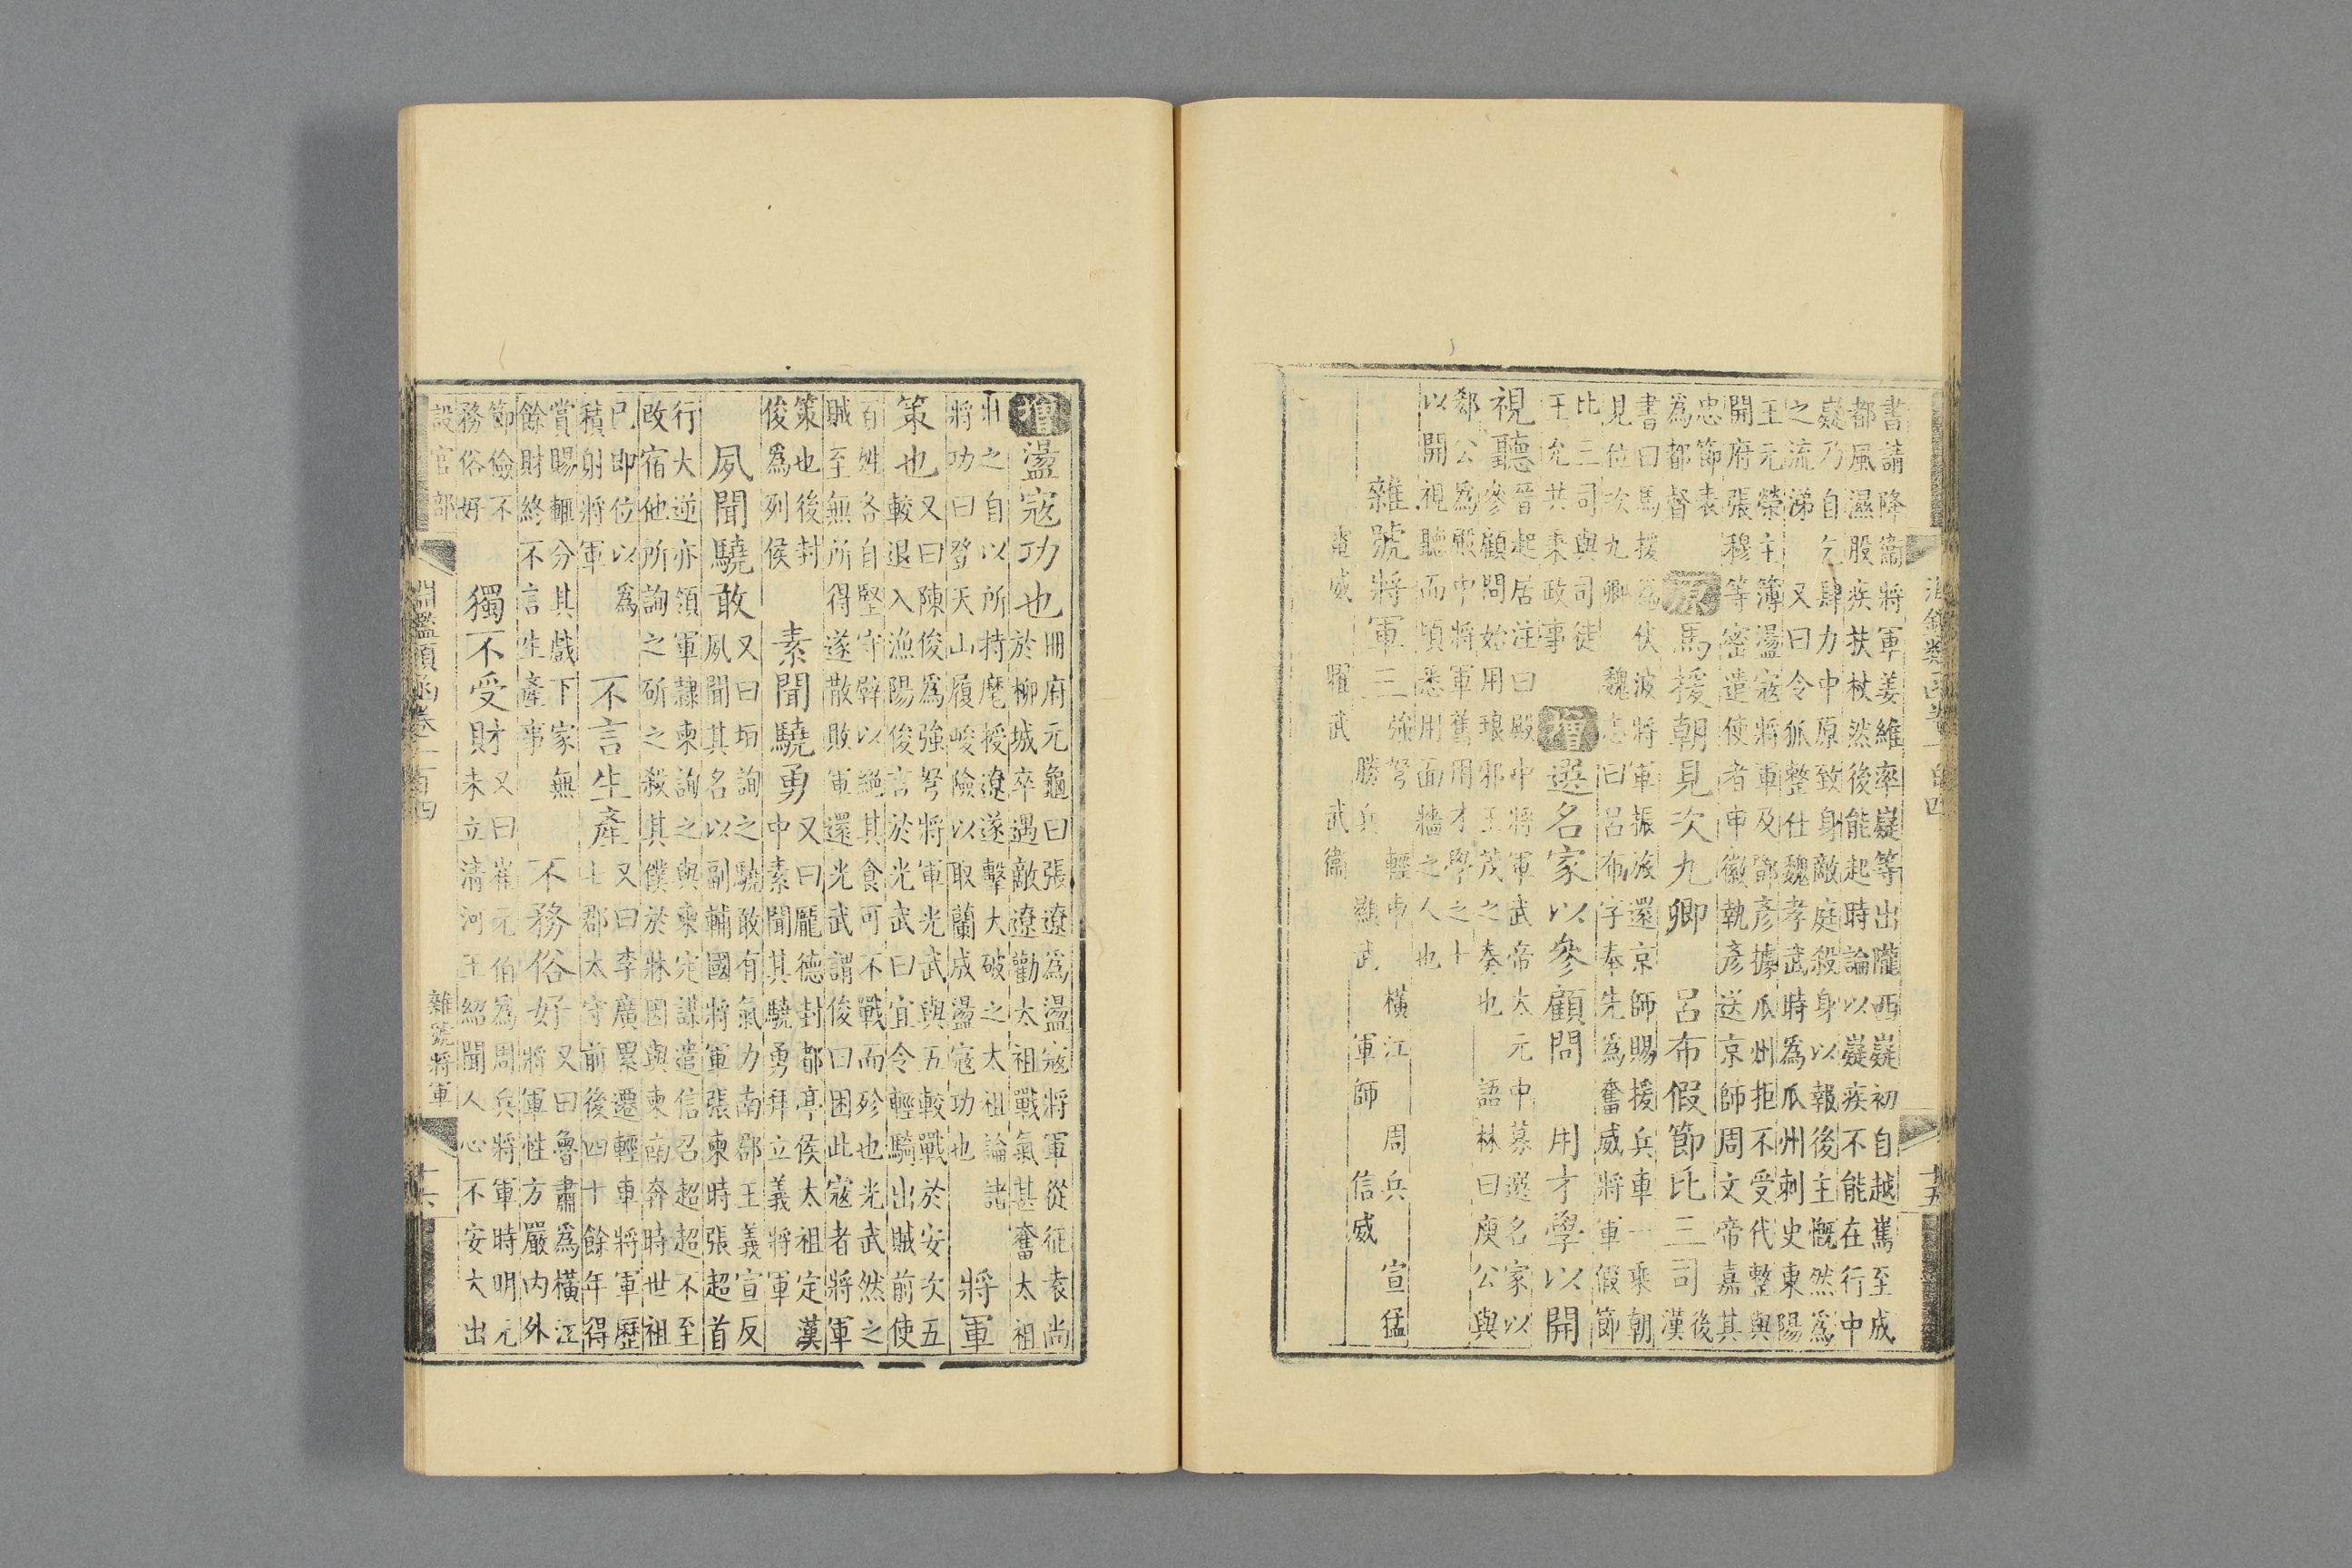 書請降衞將軍姜維率嶷等出隴西嶷初自越嶲至成
都風濕股疾扶杖然後能起時論以嶷疾不能在行中
嶷乃自乞肆力中原致身敵庭殺身以報後主慨然爲
之流涕 又曰令狐整仕魏孝武時爲瓜州刺史東陽
王元榮主簿盪寇將軍及鄧彥據瓜州拒不受代整與
開府張穆等密遣使者申徽執彥送京師周文帝嘉其
忠節表
爲都督
原 馬援朝見次九卿 呂布假節比三司 後漢
書曰馬援爲伏波將軍振旅還京師賜援兵車一乘朝
見位次九卿 魏志曰呂布字奉先爲奮威將軍假節
比三司與司徒
王允共秉政事
增 選名家以參顧問 用才學以開
視聽
晉起居注曰殿中將軍武帝太元中慕選名家以
參顧問始用琅邪王茂之奏也 語林曰庾公與
郗公爲殿中將軍舊用才學之士
以開視聽而頃悉用面牆之人也
雜號將軍三
強弩 輕車 橫江 周兵 宣猛
勝兵 顯武 軍師 信威
奮威 曜武 武衞
淵鑑類函卷一百四 十五
增 盪寇功也
冊府元龜曰張遼爲盪寇將軍從征袁尚
於柳城卒遇敵遼勸太祖戰氣甚奮太祖
壯之自以所持麾授遼遂擊大破之太祖論諸
將功曰登天山履峻險以取蘭成盪寇功也
將軍
策也
又曰陳俊爲強弩將軍光武與五較戰於安次五
較退入漁陽俊言於光武曰宜令輕騎出賊前使
百姓各自堅守辟以絕其食可不戰而殄也光武然之
賊至無所得遂散敗軍還光武謂俊曰困此寇者將軍
策也後封
俊爲列侯
素聞驍勇
又曰龐德封都亭侯太祖定漢
中素聞其驍勇拜立義將軍
夙聞驍敢
又曰垣詢之驍敢有氣力南郡王義宣反
夙聞其名以副輔國將軍張柬時張超首
行大逆亦領軍隸柬詢之與柬定謀遣信召超超不至
改宿他所詢之斫之殺其僕於牀因與柬南奔時世祖
已即位以爲
積射將軍
不言生產
又曰李廣累遷輕車將軍歷
七郡太守前後四十餘年得
賞賜輒分其戲下家無
餘財終不言生產事
不務俗好
又曰魯肅爲橫江
將軍性方嚴內外
節儉不
務俗好
獨不受財
又曰崔元伯爲周兵將軍時明元
未立清河王紹聞人心不安大出
設官部 淵鑑類函卷一百四 雜號將軍 十六